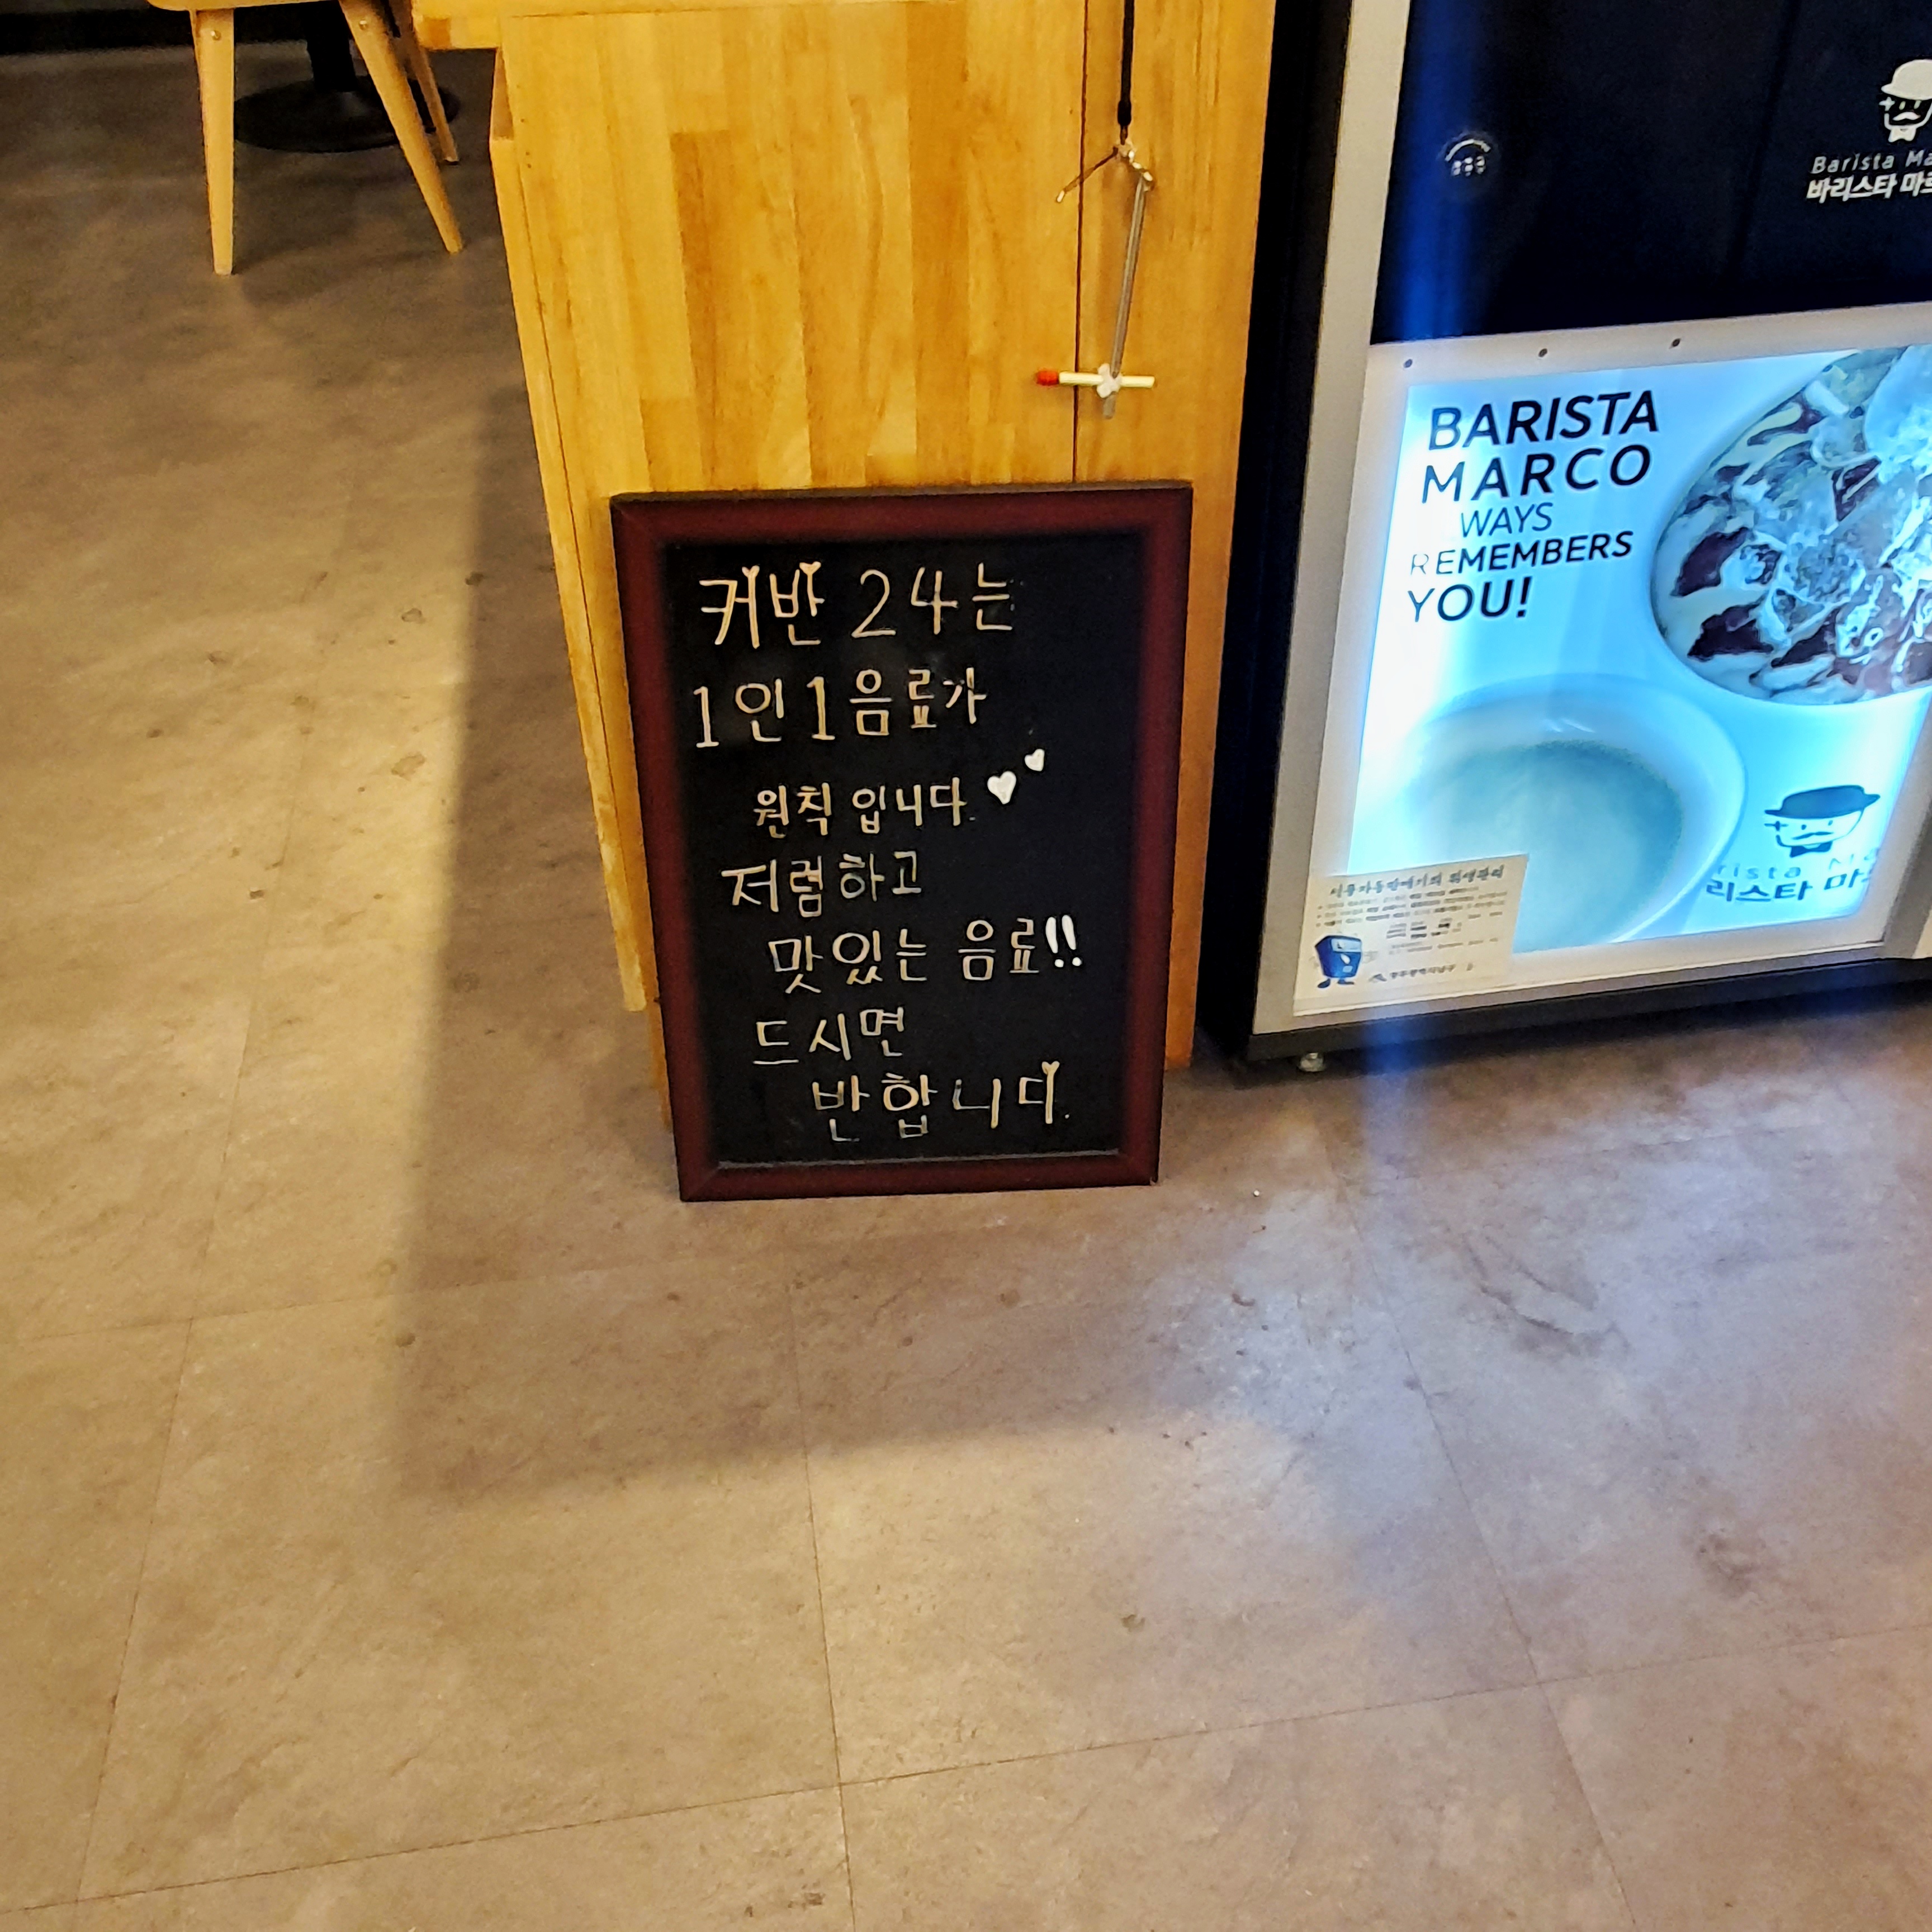 커반 24는
1인1음료가
원칙 입니다.
저렴하고
맛있는 음료!!
드시면
반합니다.
Barista
바리스타
BARISTA
MARCO
WAYS
REMEMBERS
YOU!
리스타
식품자동판매기의 위생관리